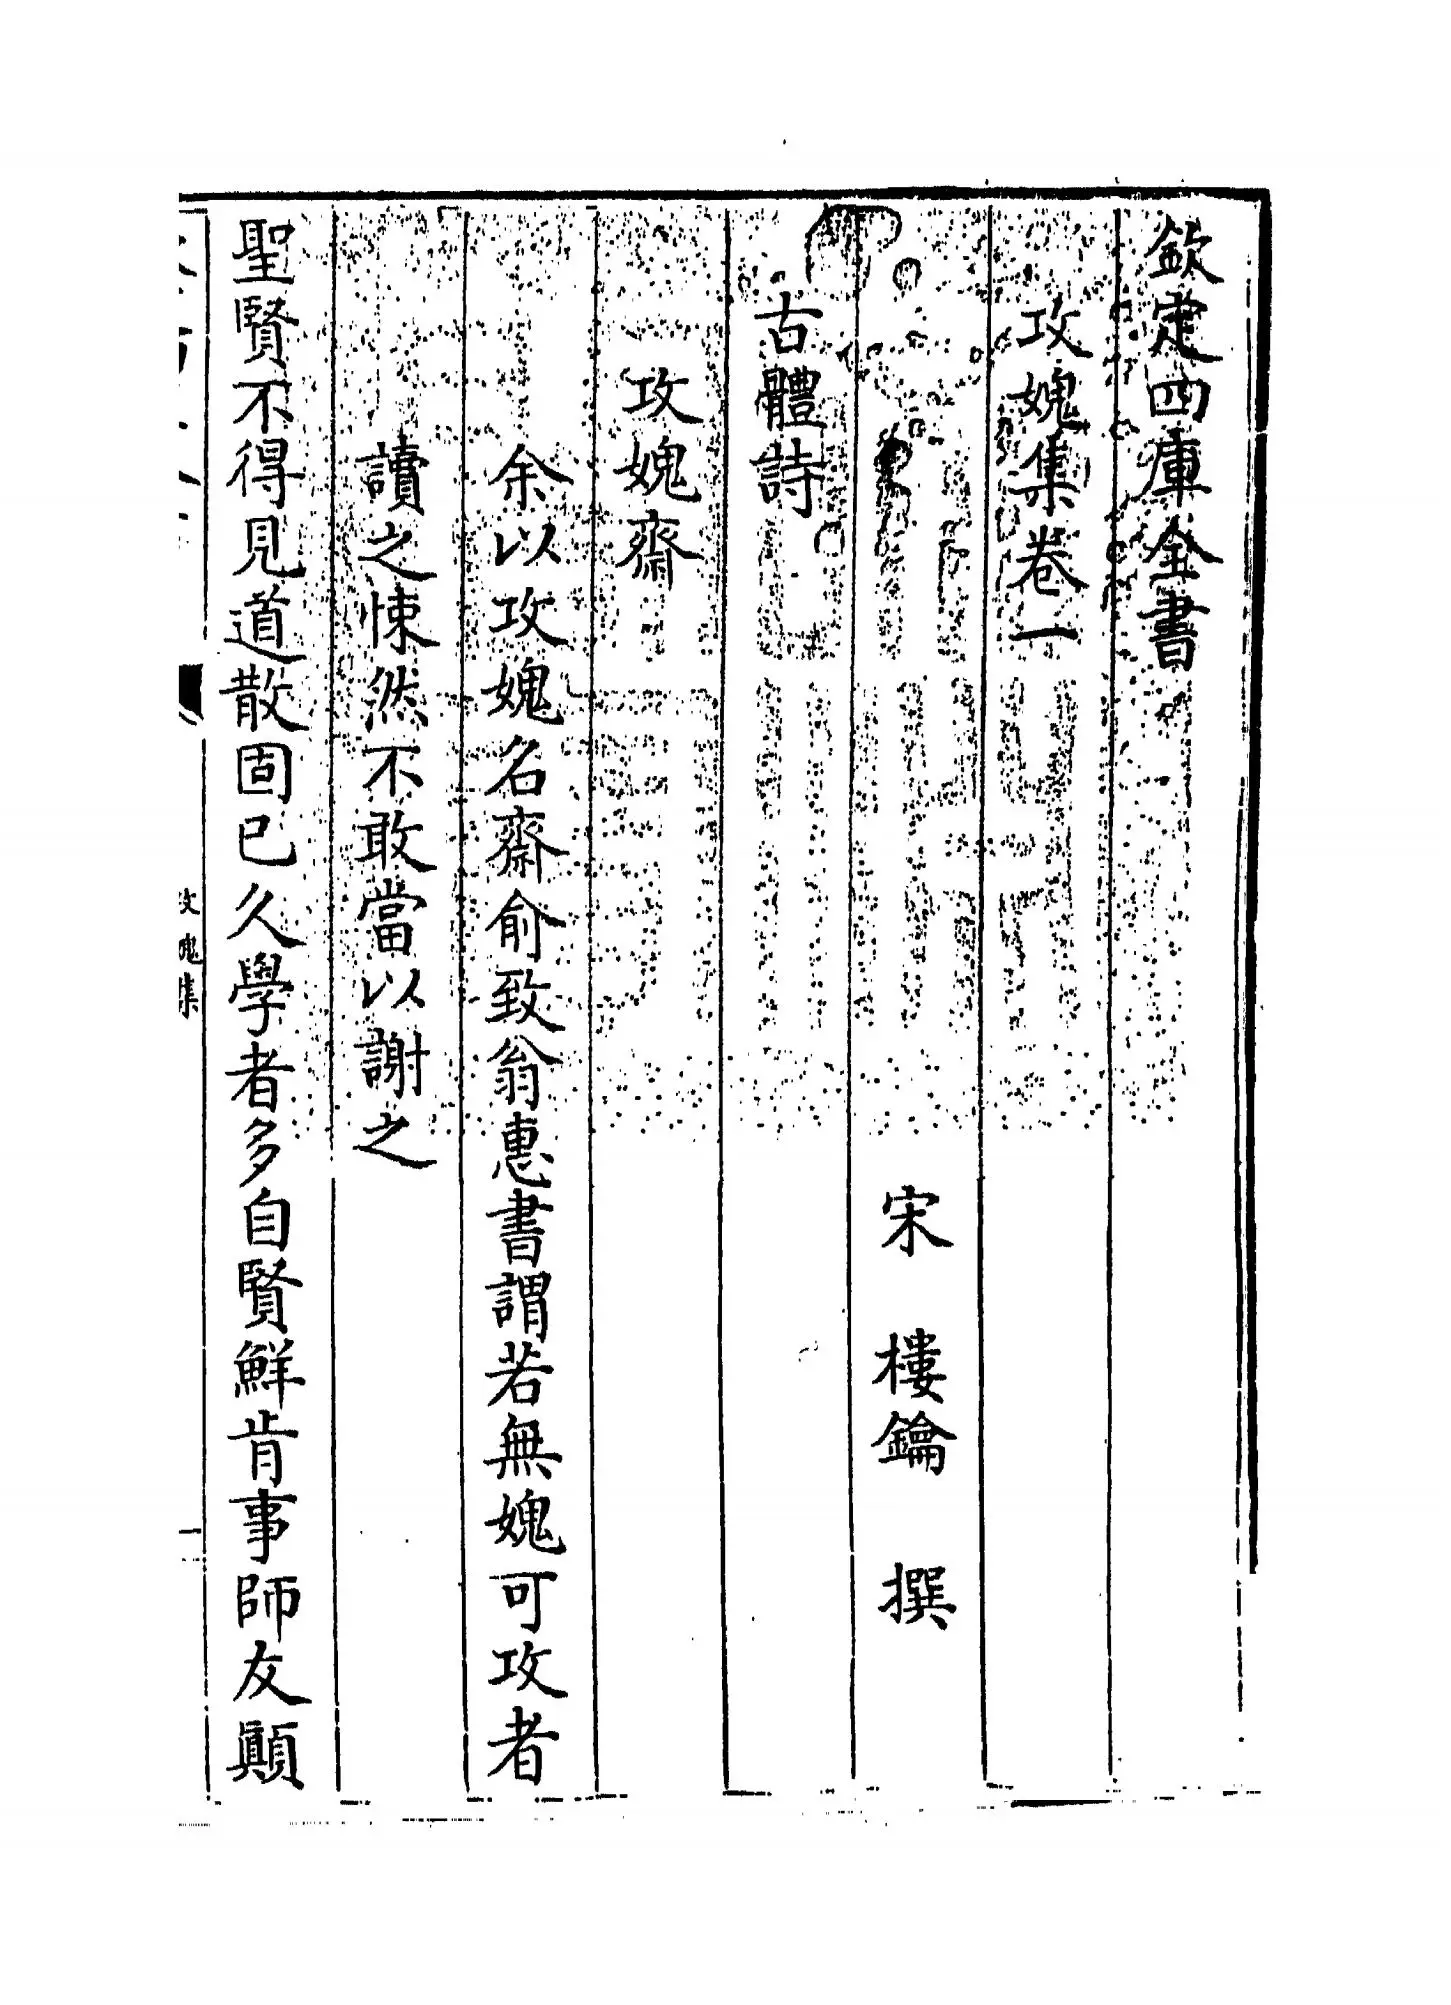 欽定四庫全書
攻媿集卷一
宋樓鑰撰
古體詩
攻媿齋
余以攻媿名齋俞致翁惠書謂若無媿可攻者
讀之悚然不敢當以謝之
聖賢不得見道散固已久學者多自賢鮮肯事師友顚
攻媿集
一